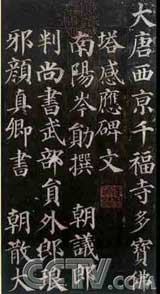 大唐西京千福寺多寶佛
塔感應碑文
南陽岑勛撰 朝議郎
判尚書武部員外郎琅
邪顏真卿書 朝散大
CCTV.com